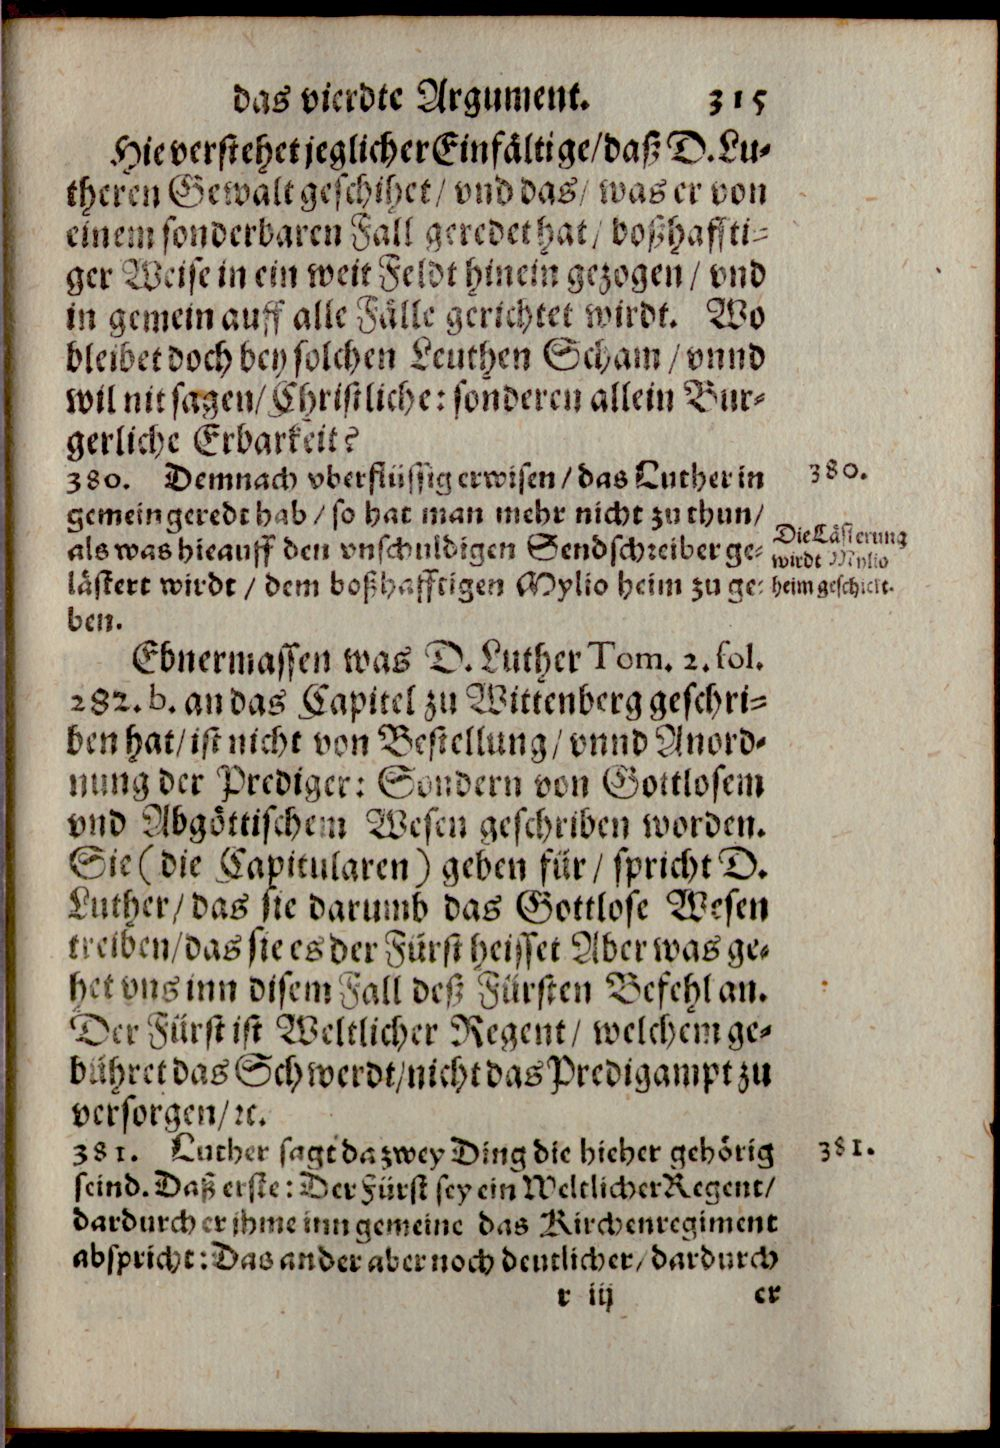 das vierdte Argument. 315
Hie verstehet jeglicher Einfältige/ daß D. Lu-
theren Gewalt geschihet/ vnd das/ was er von
einem sonderbaren Fall geredet hat/ boßhaffti-
ger Weise in ein weit Feldt hinein gezogen/ vnd
in gemein auff alle Fälle gerichtet wirdt. Wo
bleibet doch bey solchen Leuthen Scham/ vnnd
wil nit sagen/ Christliche: sonderen allein Bur-
gerliche Erbarkeit?
380. Demnach vberflüssig erwisen/ das Luther in
gemein geredt hab/ so hat man mehr nicht zu thun/
als was hieauff den vnschuldigen Sendschreiber ge-
lästert wirdt/ dem boßhafftigen Mylio heim zu ge-
ben.
380.
Die Lästerung
wirdt Mylio
heim geschickt.
Ebnermassen was D. Luther Tom. 2. fol.
282. b. an das Capitel zu Wittenberg geschri-
ben hat/ ist nicht von Bestellung/ vnnd Anord-
nung der Prediger: Sondern von Gottlosem
vnd Abgöttischem Wesen geschriben worden.
Sie (die Capitularen) geben für/ spricht D.
Luther/ das sie darumb das Gottlose Wesen
treiben/ das sie es der Fürst heisset Aber was ge-
het vns inn disem Fall deß Fürsten Befehl an.
Der Fürst ist Weltlicher Regent/ welchem ge-
bühret das Schwerdt/ nicht das Predigampt zu
versorgen/ ꝛc.
381. Luther sagt da zwey Ding die hieher gehörig
seind. Daß erste: Der Fürst sey ein Weltlicher Regent/
dardurch er jhme inn gemeine das Kirchenregiment
abspricht: Das ander aber noch deutlicher/ dardurch
381.
r iij er